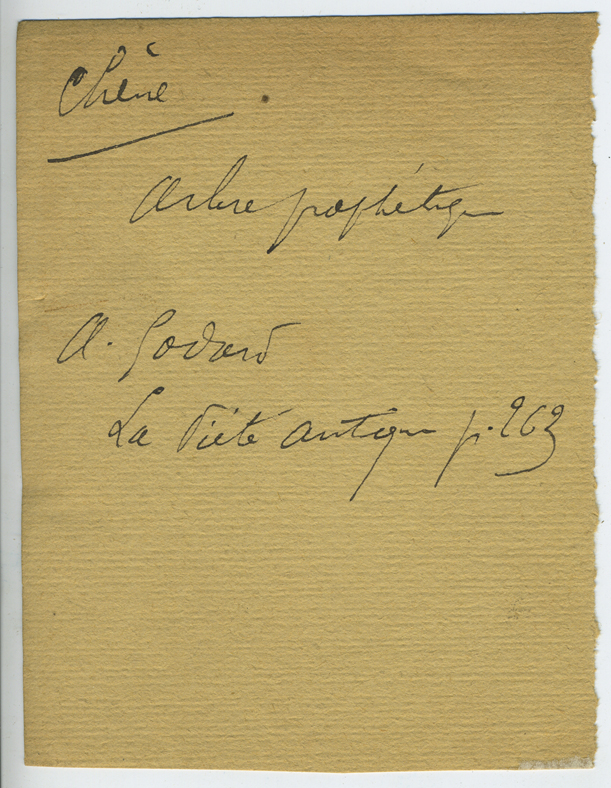 Chêne
Arbre prophétique
A. Godard
La Piété antique p. 263